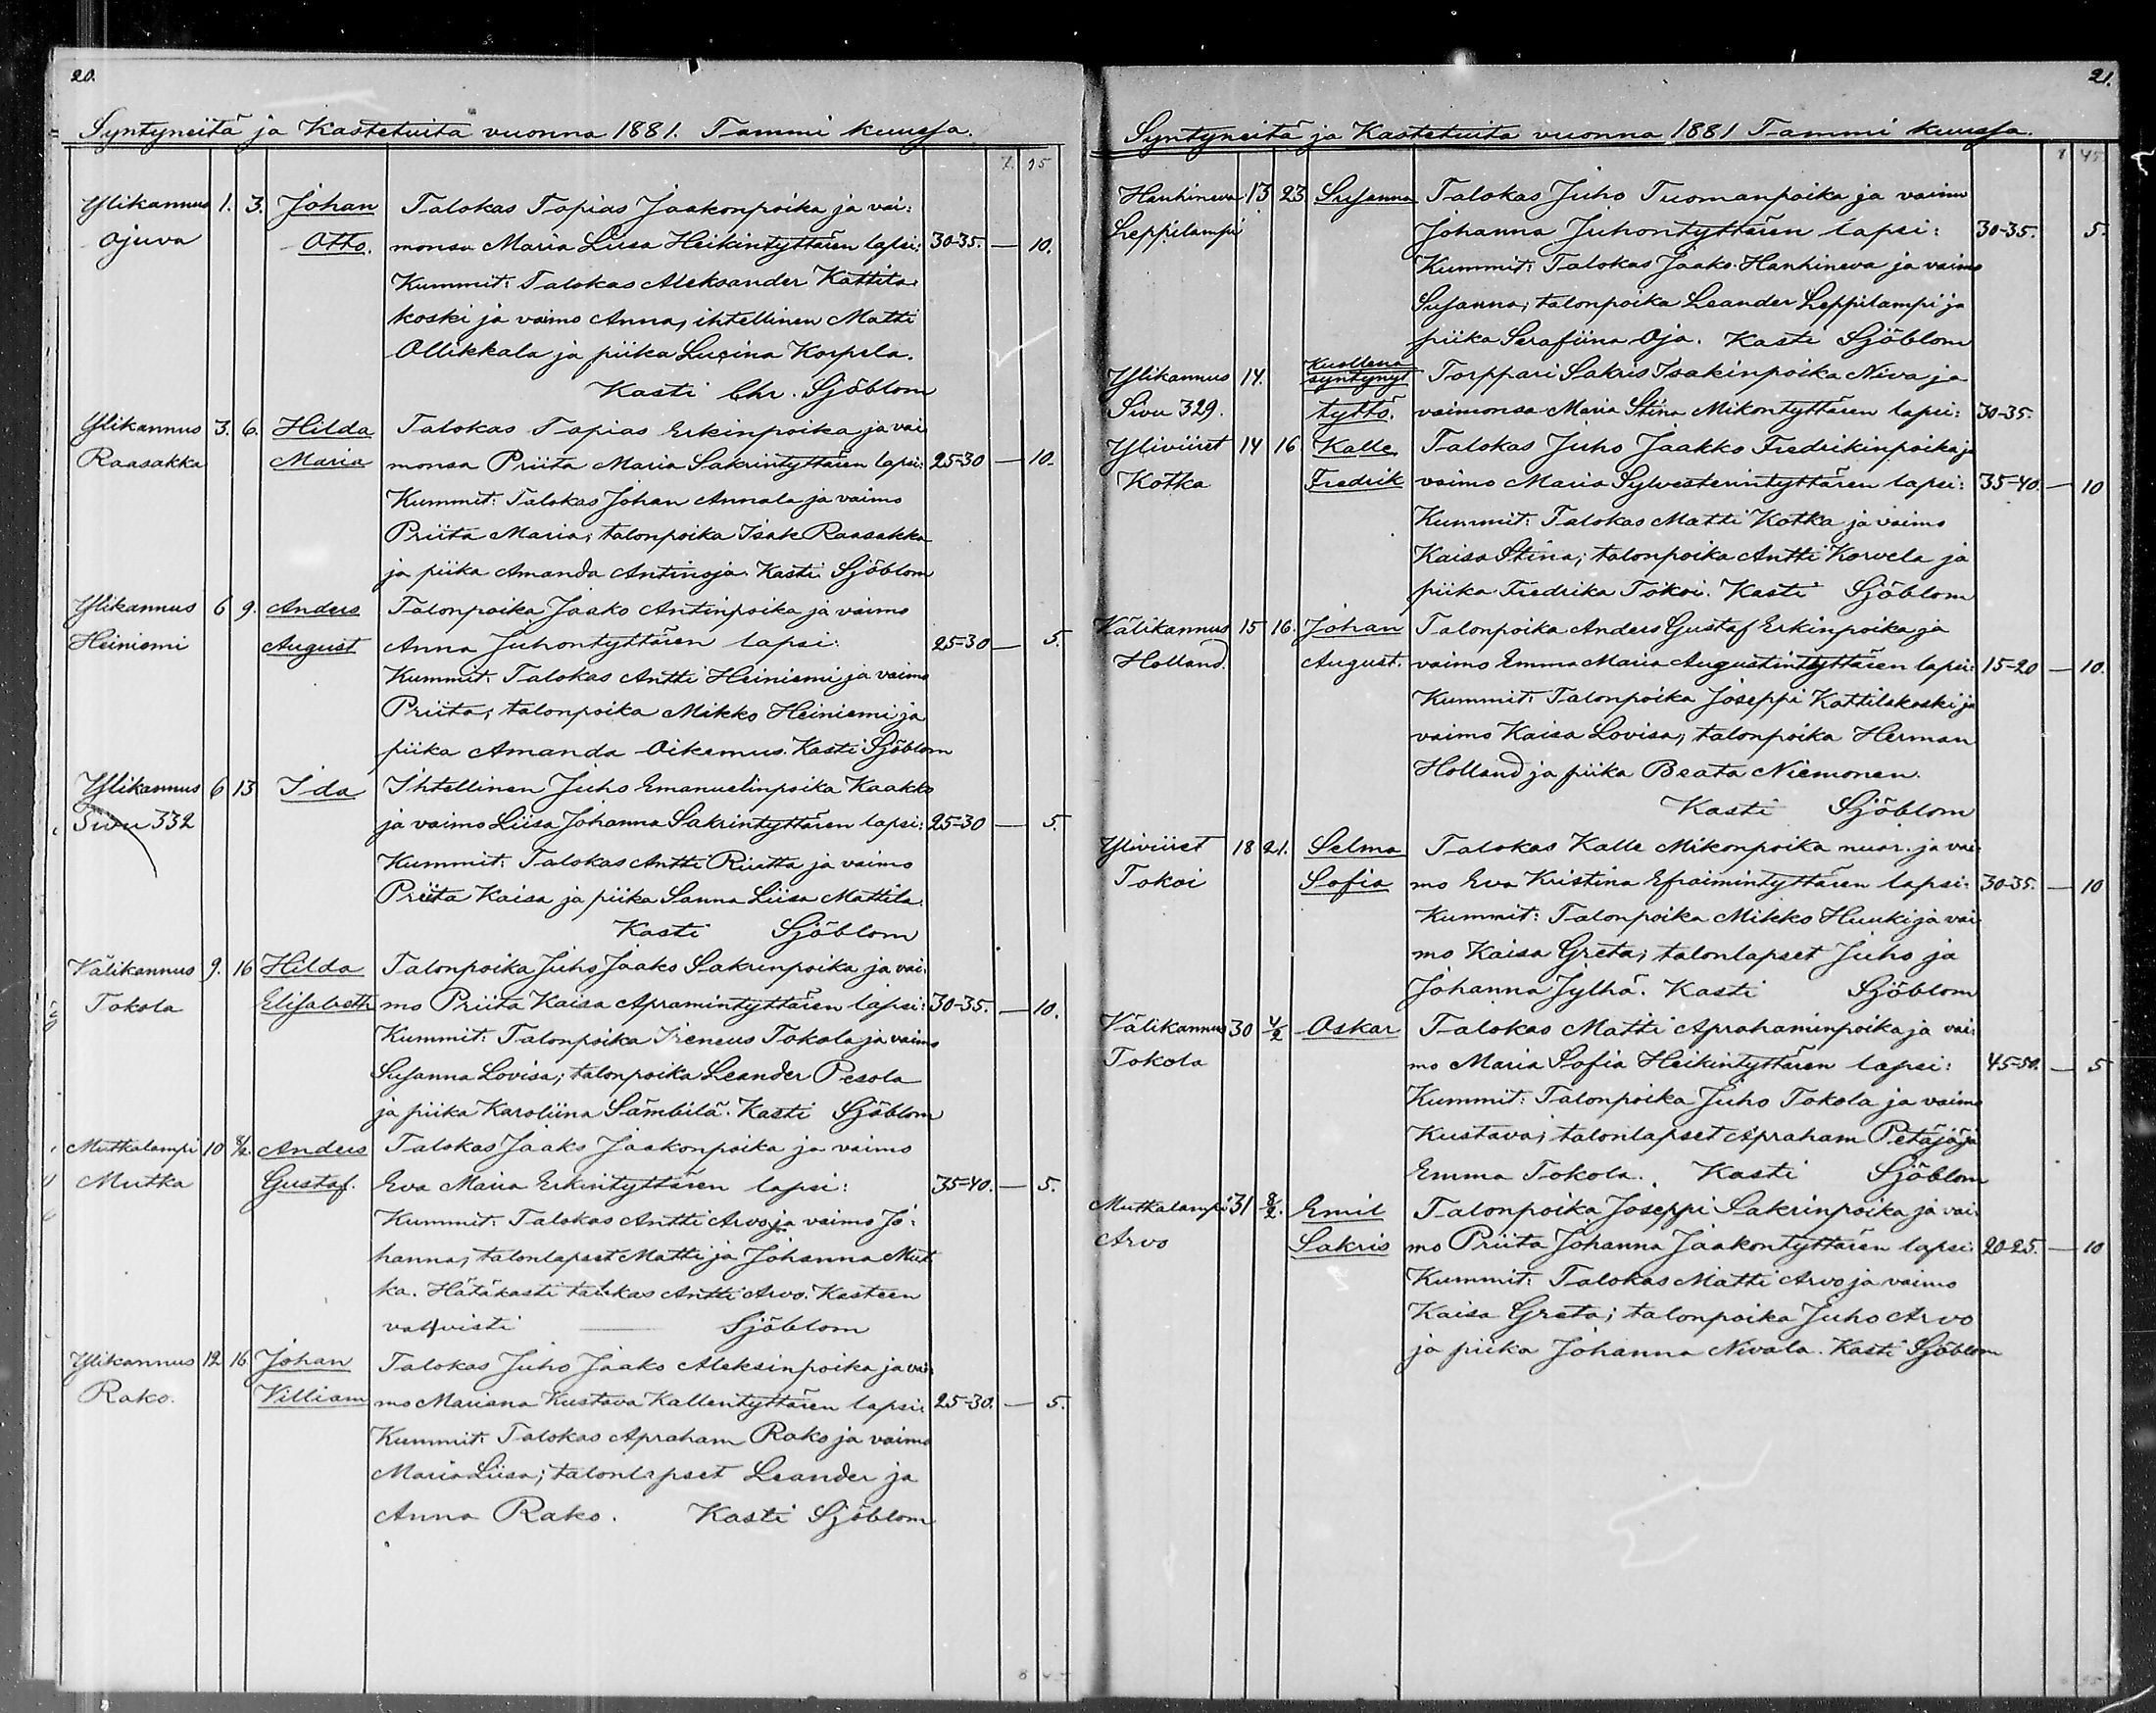 20.
Syntyneitä ja Kastetuita vuonna 1881. Tammi kuussa.
7. 95
Ylikannus 1. 3. Johan Talokas Tapias Jaakonpoika ja vai:
Ojuva Otto. monsa Maria Liisa Heikintyttären lapsi: 30-35. — 10.
Kummit: Talokas Aleksander Kattila:
koski ja vaimo Anna, ihtellinen Matti
Ollikkala ja piika Lusina Korpela.
Kasti Chr. Sjöblom
Ylikannus 3. 6. Hilda Talokas Tapias Erkinpoika ja vai
Raasakka Maria monsa Priita Maria Sakrintyttären lapsi: 25-30 — 10.
Kummit: Talokas Johan Annala ja vaimo
Priita Maria; talonpoika Isak Raasakka
ja piika Amanda Antinoja. Kasti Sjöblom
Ylikannus 6 9. Anders Talonpoika Jaako Antinpoika ja vaimo
Heiniemi August Anna Juhontyttären lapsi: 25-30 — 5.
Kummit: Talokas Antti Heiniemi ja vaimo
Priita; talonpoika Mikko Heiniemi ja
piika Amanda Oikemus. Kasti Sjöblom
Ylikannus 6 13 Ida Ihtellinen Juho Emanuelinpoika Kaakko
Sivu 332 ja vaimo Liisa Johanna Sakrintyttären lapsi: 25-30 — 5.
Kummit: Talokas Antti Riutta ja vaimo
Priita Kaisa ja piika Sanna Liisa Mattila.
Kasti Sjöblom
Välikannus 9. 16 Hilda Talonpoika Juho Jaako Sakrinpoika ja vai:
Tokola Elisabeth mo Priita Kaisa Apramintyttären lapsi: 30-35. — 10.
Kummit: Talonpoika Ireneus Tokola ja vaimo
Susanna Lovisa; talonpoika Leander Pesola
ja piika Karoliina Sämbilä. Kasti Sjöblom
Mutkalampi 10 8/2. Anders Talokas Jaako Jaakonpoika ja vaimo
Mutka Gustaf. Eva Maria Erkintyttären lapsi: 35-40. — 5.
Kummit: Talokas Antti Arvo ja vaimo Jo:
hanna; talonlapset Matti ja Johanna Mut
ka. Hätäkasti talokas Antti Arvo. Kasteen
vahvisti — Sjöblom
Ylikannus 12 16 Johan Talokas Juho Jaako Aleksinpoika ja vai:
Rako. Villiam mo Mariana Kustava Kallentyttären lapsi: 25-30. — 5.
Kummit: Talokas Apraham Rako ja vaimo
Maria Liisa; talonlapset Leander ja
Anna Rako. Kasti Sjöblom
21.
Syntyneitä ja Kastetuita vuonna 1881 Tammi kuussa.
8 45
Hanhineva 13 23 Susanna Talokas Juho Tuomanpoika ja vaimo
Leppilampi Johanna Juhontyttären lapsi: 30-35. 5.
Kummit: Talokas Jaako Hanhineva ja vaimo
Susanna; talonpoika Leander Leppilampi ja
piika Serafiina Oja. Kasti Sjöblom
Ylikannus 14. Kuollena syntynyt Torppari Sakris Isakinpoika Niva ja
Sivu 329. tyttö. vaimonsa Maria Stina Mikontyttären lapsi: 30-35.
Yliviiret 14 16 Kalle Talokas Juho Jaakko Fredrikinpoika ja
Kotka Fredrik vaimo Maria Sylvesterintyttären lapsi: 35-40. — 10
Kummit: Talokas Matti Kotka ja vaimo
Kaisa Stina; talonpoika Antti Korvela ja
piika Fredrika Tokoi. Kasti Sjöblom
Välikannus 15 16. Johan Talonpoika Anders Gustaf Erkinpoika ja
Holland. August. vaimo Emma Maria Augustintyttären lapsi: 15-20 — 10.
Kummit: Talonpoika Joseppi Kattilakoski ja
vaimo Kaisa Lovisa; talonpoika Herman
Holland ja piika Beata Niemonen.
Kasti Sjöblom
Yliviiret 18 21. Selma Talokas Kalle Mikonpoika nuor. ja vai
Tokoi Sofia mo Eva Kristina Efraimintyttären lapsi: 30-35. — 10
Kummit: Talonpoika Mikko Huuki ja vai
mo Kaisa Greta; talonlapset Juho ja
Johanna Jylhä. Kasti Sjöblom
Välikannus 30 4/2 Oskar Talokas Matti Aprahaminpoika ja vai:
Tokola mo Maria Sofia Heikintyttären lapsi: 45-50. — 5
Kummit: Talonpoika Juho Tokola ja vaimo
Kustava; talonlapset Apraham Petäjä ja
Emma Tokola. Kasti Sjöblom
Mutkalampi 31 8/2. Emil Talonpoika Joseppi Sakrinpoika ja vai:
Arvo Sakris mo Priita Johanna Jaakontyttären lapsi: 20-25. — 10
Kummit: Talokas Matti Arvo ja vaimo
Kaisa Greta; talonpoika Juho Arvo
ja piika Johanna Nivala. Kasti Sjöblom